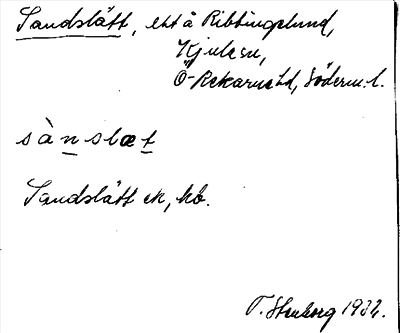 Sandslätt, ext å Ribbingelund,
Kjula sn,
Ö-Rekarne hd, Söderm. l.
sànslæt
Sandslätt ek, kö.
T. Stenberg 1932.